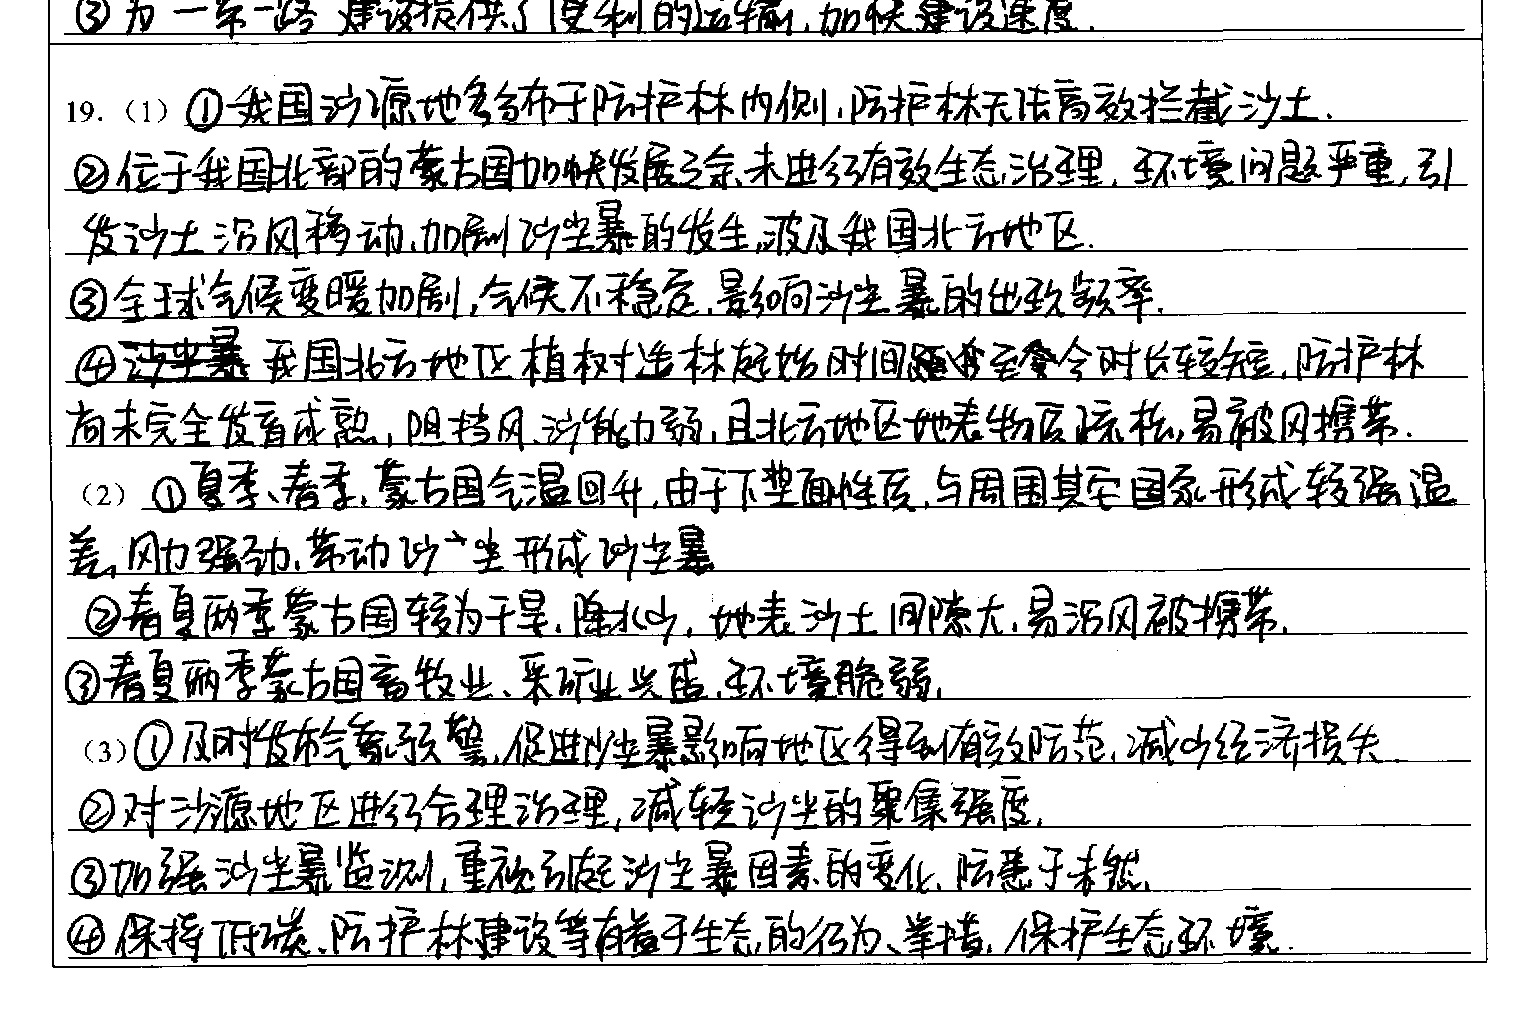 ③为一带一路建设提供了便利的运输,加快建设速度.
19.（1）①我国沙源地多分布于防护林内侧,防护林无法高效拦截沙土.
②位于我国北部的蒙古国加快发展之余,未进行有效生态治理,环境问题严重,引
发沙土沿风移动,加剧沙尘暴的发生,波及我国北方地区.
③全球气候变暖加剧,气候不稳定,影响沙尘暴的出现频率.
④沙尘暴 我国北方地区植树造林起始时间距至今时长较短,防护林
尚未完全发育成熟,阻挡风沙能力弱,且北方地区地表物质疏松,易被风携带.
（2）①夏季、春季,蒙古国气温回升,由于下垫面性质,与周围其它国家形成较强温
差,风力强劲,带动沙尘形成沙尘暴
②春夏两季蒙古国较为干旱,降水少,地表沙土间隙大,易沿风被携带.
③春夏两季蒙古国畜牧业、采矿业兴盛,环境脆弱.
（3）①及时发布气象预警,促进沙尘暴影响地区得到有效防范,减少经济损失.
②对沙源地区进行合理治理,减轻沙尘的聚集强度.
③加强沙尘暴监测,重视引起沙尘暴因素的变化,防患于未然.
④保持低碳、防护林建设等有益于生态的行为、举措,保护生态环境.